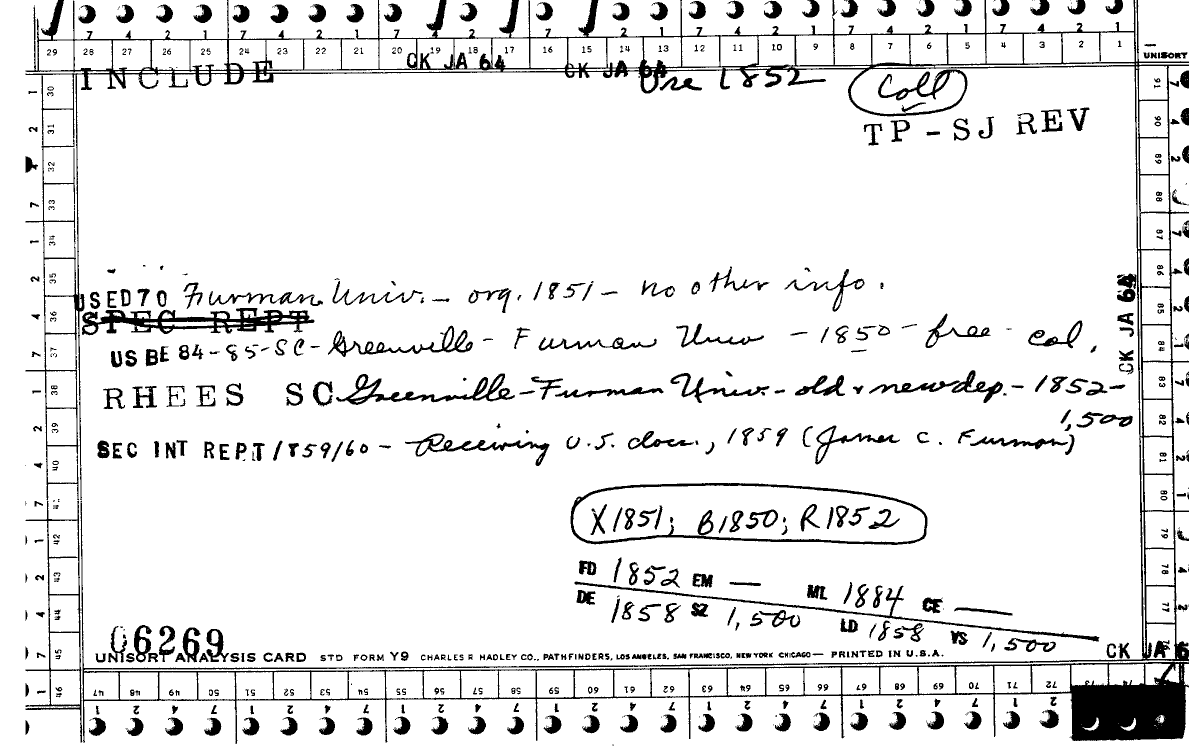 7 4 2 1 7 4 2 1 7 4 2 1 7 4 2 1 7 4 2 1 7 4 2 1 7 4 2 1
29 28 27 26 25 24 23 22 21 20 19 18 17 16 15 14 13 12 11 10 9 8 7 6 5 4 3 2 1
UNISORT
CK JA 64 CK JA 64
INCLUDE Use 1852 Coll
TP-SJ REV
USED70 Furman Univ. - org. 1851 - no other info.
SPEC REPT
US BE 84-85-SC-Greenville - Furman Univ - 1850 - free - col.
RHEES SC Greenville - Furman Univ. - old & new dep. - 1852-
1,500
SEC INT REPT 1859/60 - Receiving U.S. docs., 1859 (James C. Furman)
CK JA 64
X1851; B1850; R1852
FD 1852 EM — ML 1884 CE —
DE 1858 SZ 1,500 LD 1858 VS 1,500
06269
UNISORT ANALYSIS CARD STD FORM Y9 CHARLES R HADLEY CO., PATHFINDERS, LOS ANGELES, SAN FRANCISCO, NEW YORK CHICAGO — PRINTED IN U.S.A.
CK JA 6
46 47 48 49 50 51 52 53 54 55 56 57 58 59 60 61 62 63 64 65 66 67 68 69 70 71 72